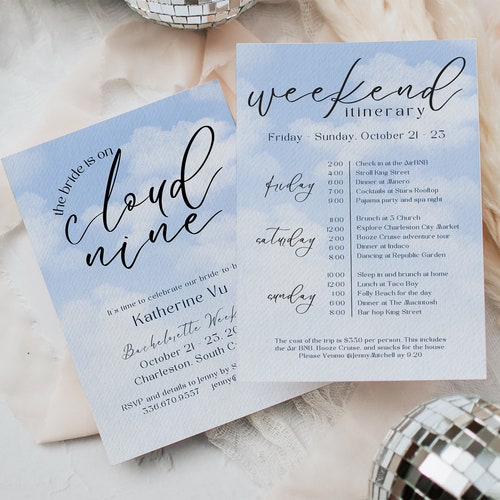 the bride is on
cloud
nine
It's time to celebrate our bride-to-b
Katherine Vu
Bachelorette Week
October 21 - 23, 20
Charleston, South C
RSVP and details to Jenny by S
336.670.9337 jenny@
weekend
itinerary
Friday - Sunday, October 21 - 23
friday
2:00 Check in at the AirBNB
4:00 Stroll King Street
6:00 Dinner at Minero
7:00 Cocktails at Stars Rooftop
9:00 Pajama party and spa night
saturday
11:00 Brunch at 5 Church
12:00 Explore Charleston City Market
2:00 Booze Cruise adventure tour
6:00 Dinner at Indaco
8:00 Dancing at Republic Garden
sunday
10:00 Sleep in and brunch at home
12:00 Lunch at Taco Boy
1:00 Folly Beach for the day
6:00 Dinner at The Macintosh
8:00 Bar hop King Street
The cost of the trip is $350 per person. This includes
the Air BNB, Booze Cruise, and snacks for the house
Please Venmo @JennyMitchell by 9.20